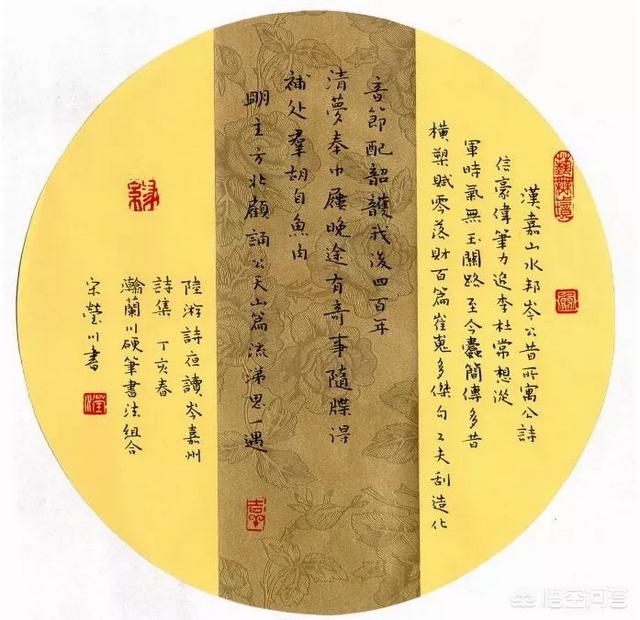 漢嘉山水邦岑公昔所寓公詩
信豪偉筆力追李杜常想從
軍時氣無玉關路至今蠹簡傳多昔
橫槊賦零落財百篇崔嵬多傑句工夫刮造化
音節配韶頀我後四百年
清夢奉巾屨晚途有奇事隨牒得
補处羣胡自魚肉
明主方北顧誦公天山篇流涕思一遇
陸游詩夜讀岑嘉州
詩集 丁亥春
瀚蘭川硬筆書法組合
宋瑩川書
悟空问答